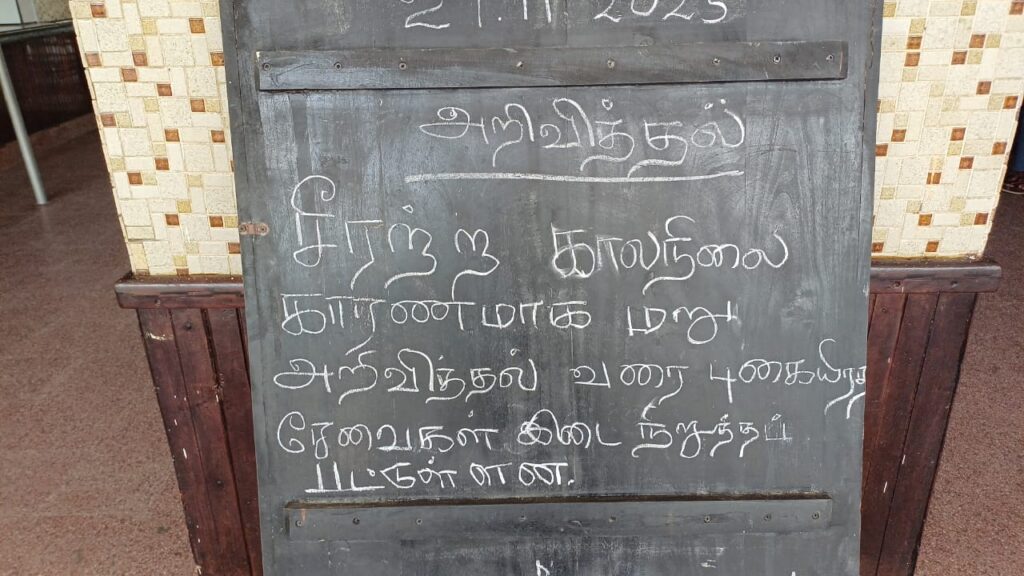 27.11 2025
அறிவித்தல்
சீரற்ற காலநிலை
காரணமாக மறு
அறிவித்தல் வரை புகையிரத
சேவைகள் இடை நிறுத்தப்
பட்டுள்ளன.